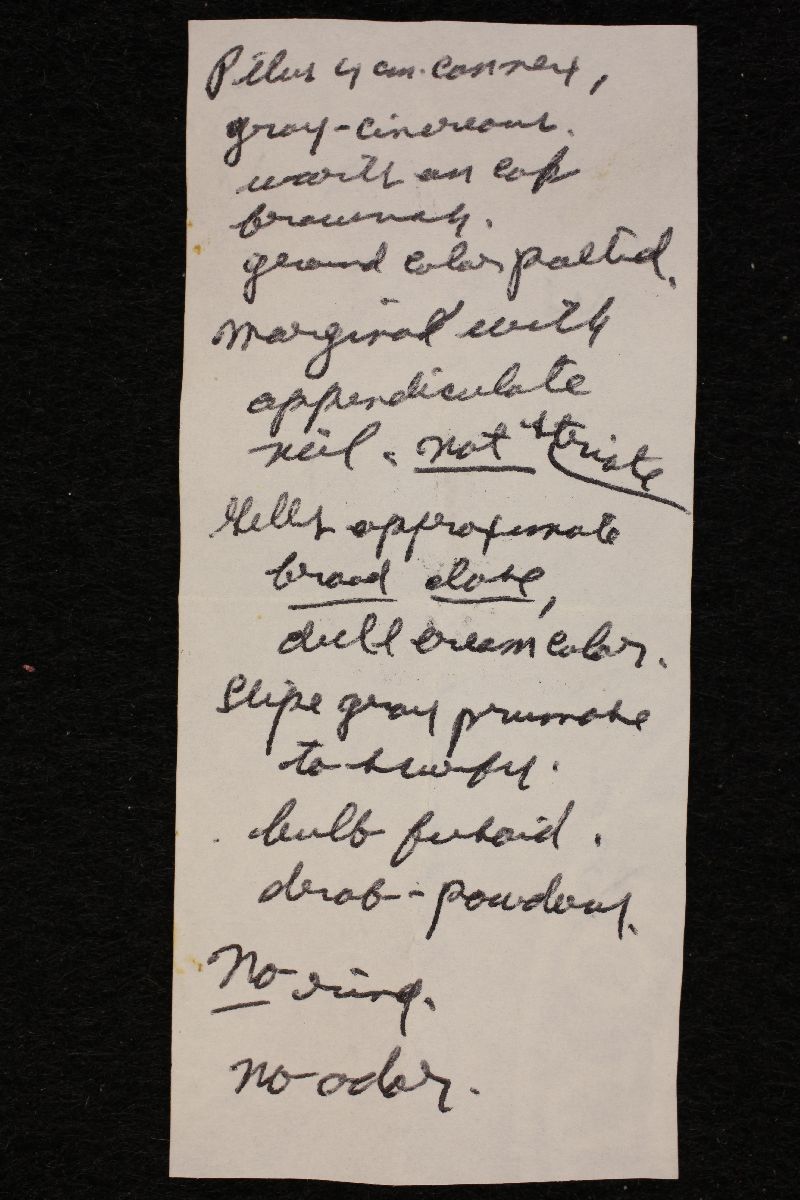 Pileus 4 cm. convex,
gray-cinereous.
warts on cap
brownish.
ground color pallid.
marginal with
appendiculate
veil. not striate
Gills approximate
broad close,
dull cream color.
Stipe gray pruinose
to scurfy.
bulb fusoid.
drab-powdery.
No ring.
no odor.